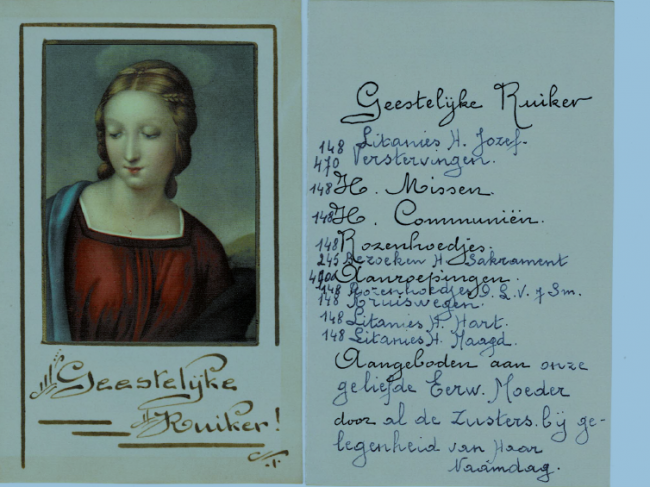 Geestelijke
Ruiker!
Geestelijke Ruiker
148 Litanies H. Jozef.
470 Verstervingen.
148 H. Missen.
148 H. Communiën.
148 Rozenhoedjes.
245 Bezoeken H. Sakrament
Aanroepingen.
148 Rozenhoedjes O. L. V. 7 Sm.
148 Kruiswegen.
148 Litanies H. Hart.
148 Litanies H. Maagd.
Aangeboden aan onze
geliefde Eerw. Moeder
door al de Zusters. bij ge-
legenheid van Haar
Naamdag.